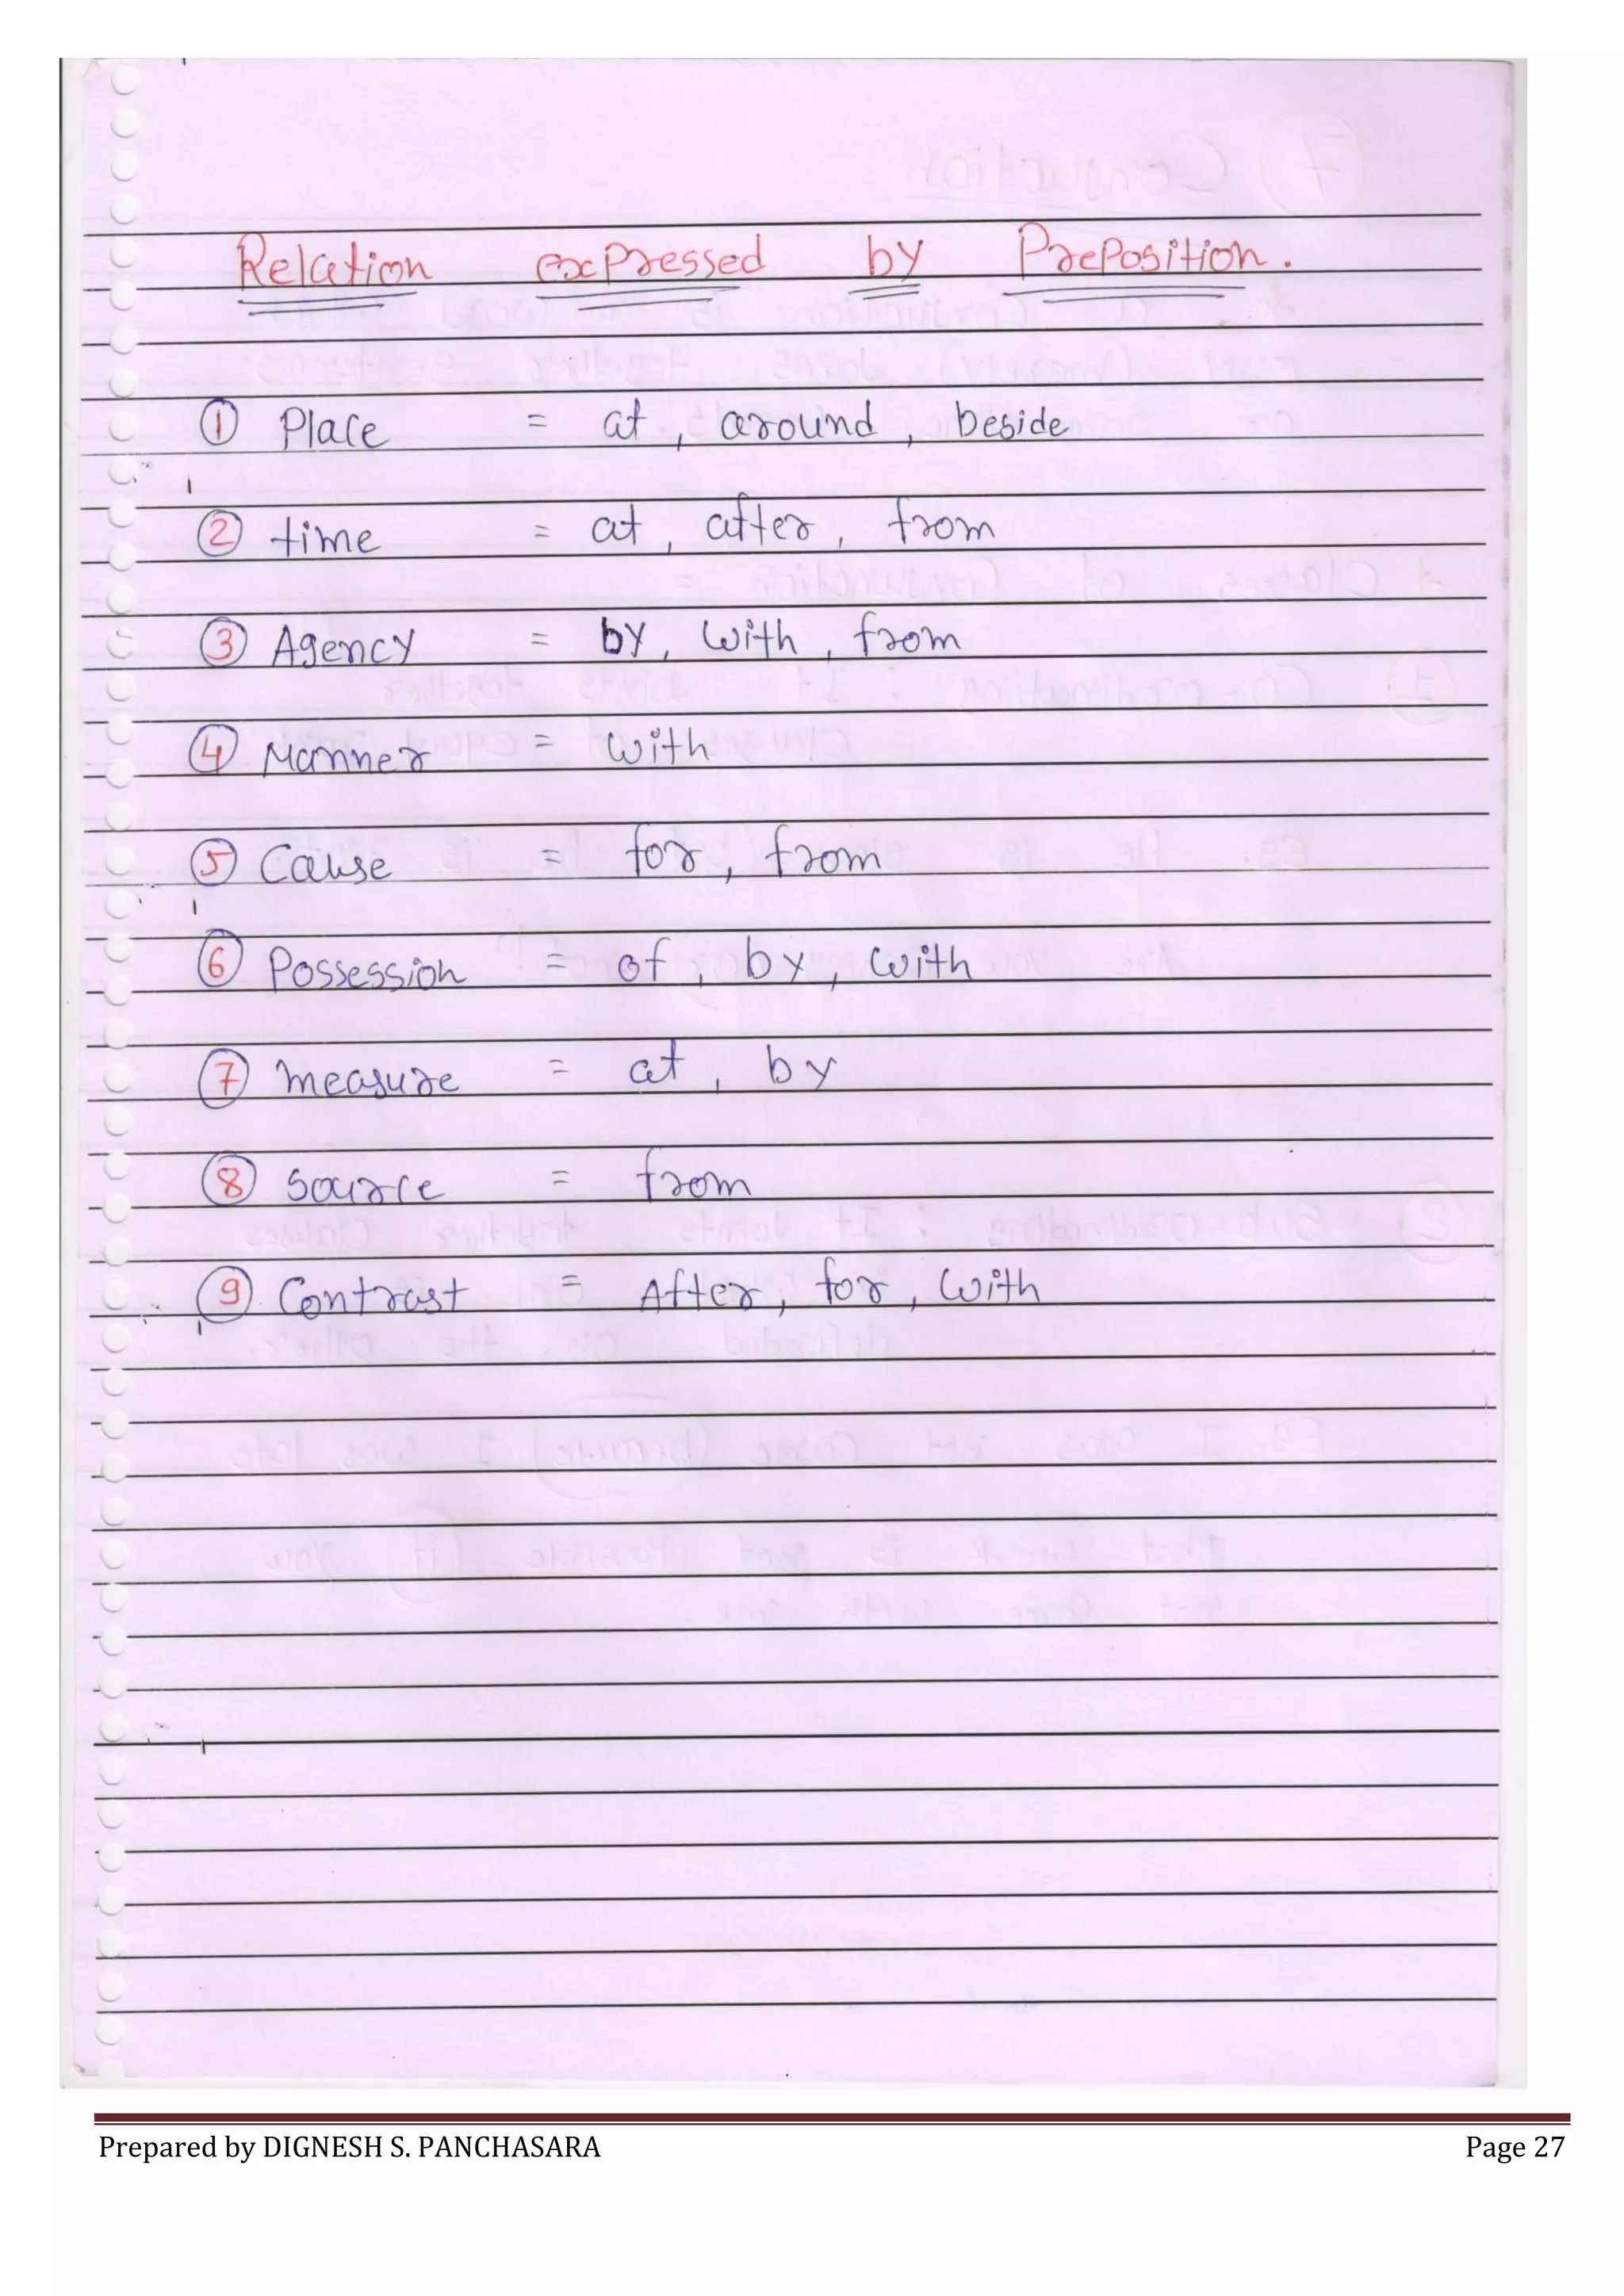 Relation expressed by Preposition.
① Place = at, around, beside
② time = at, after, from
③ Agency = by, with, from
④ Manner = with
⑤ Cause = for, from
⑥ Possession = of, by, with
⑦ measure = at, by
⑧ source = from
⑨ Contrast = After, for, with
Prepared by DIGNESH S. PANCHASARA Page 27